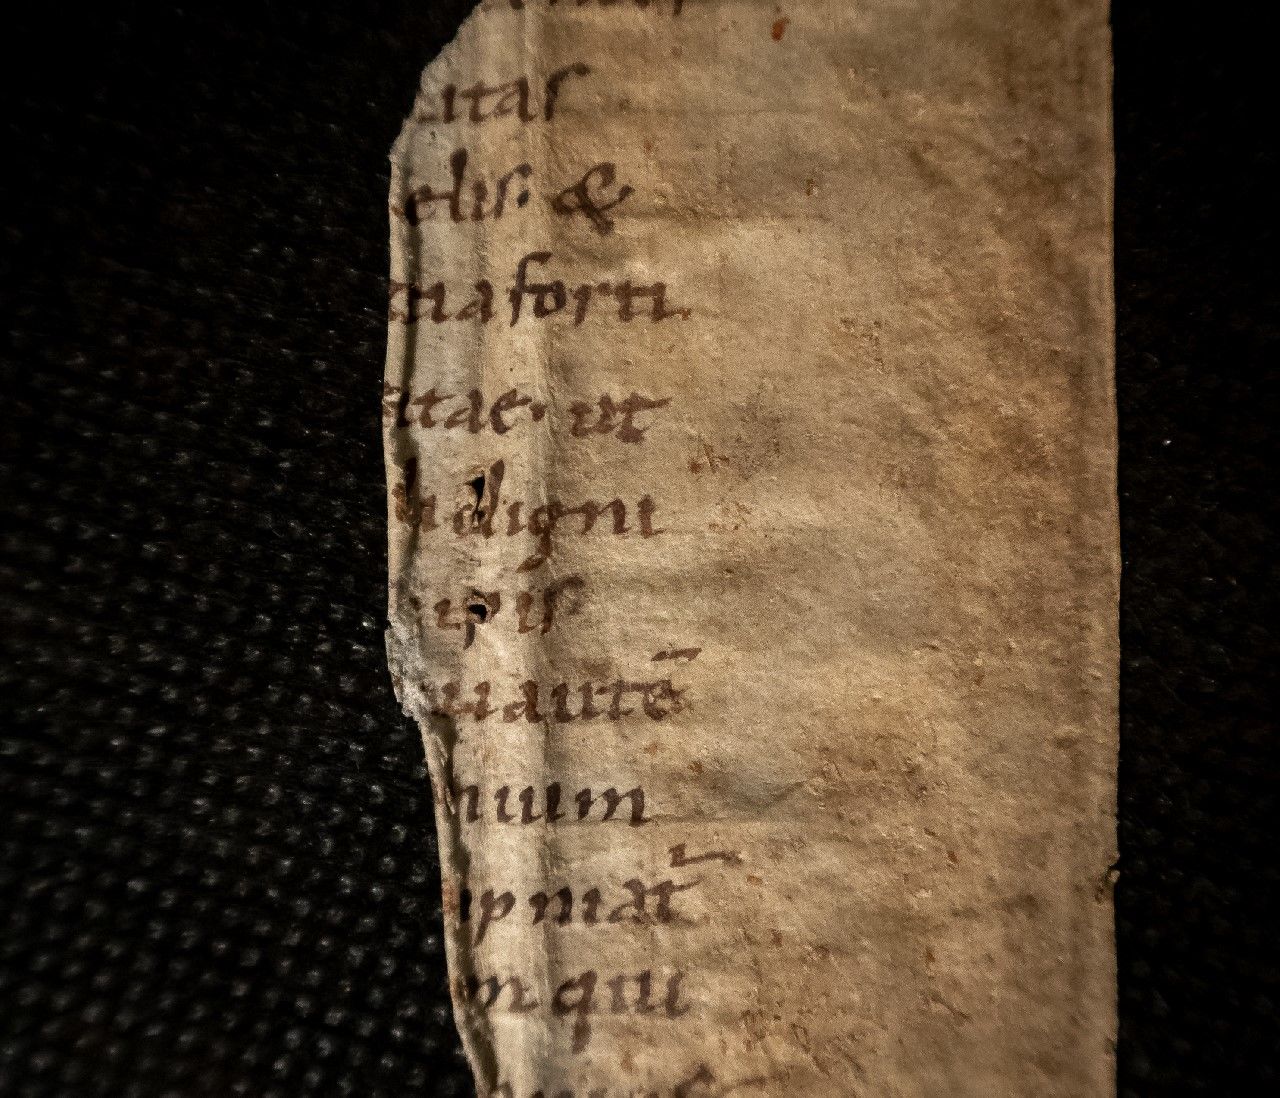 itas
elis· &
tia forti
itae· ut
h digni
ipis
u autē
nium
ip niat̄
m qui